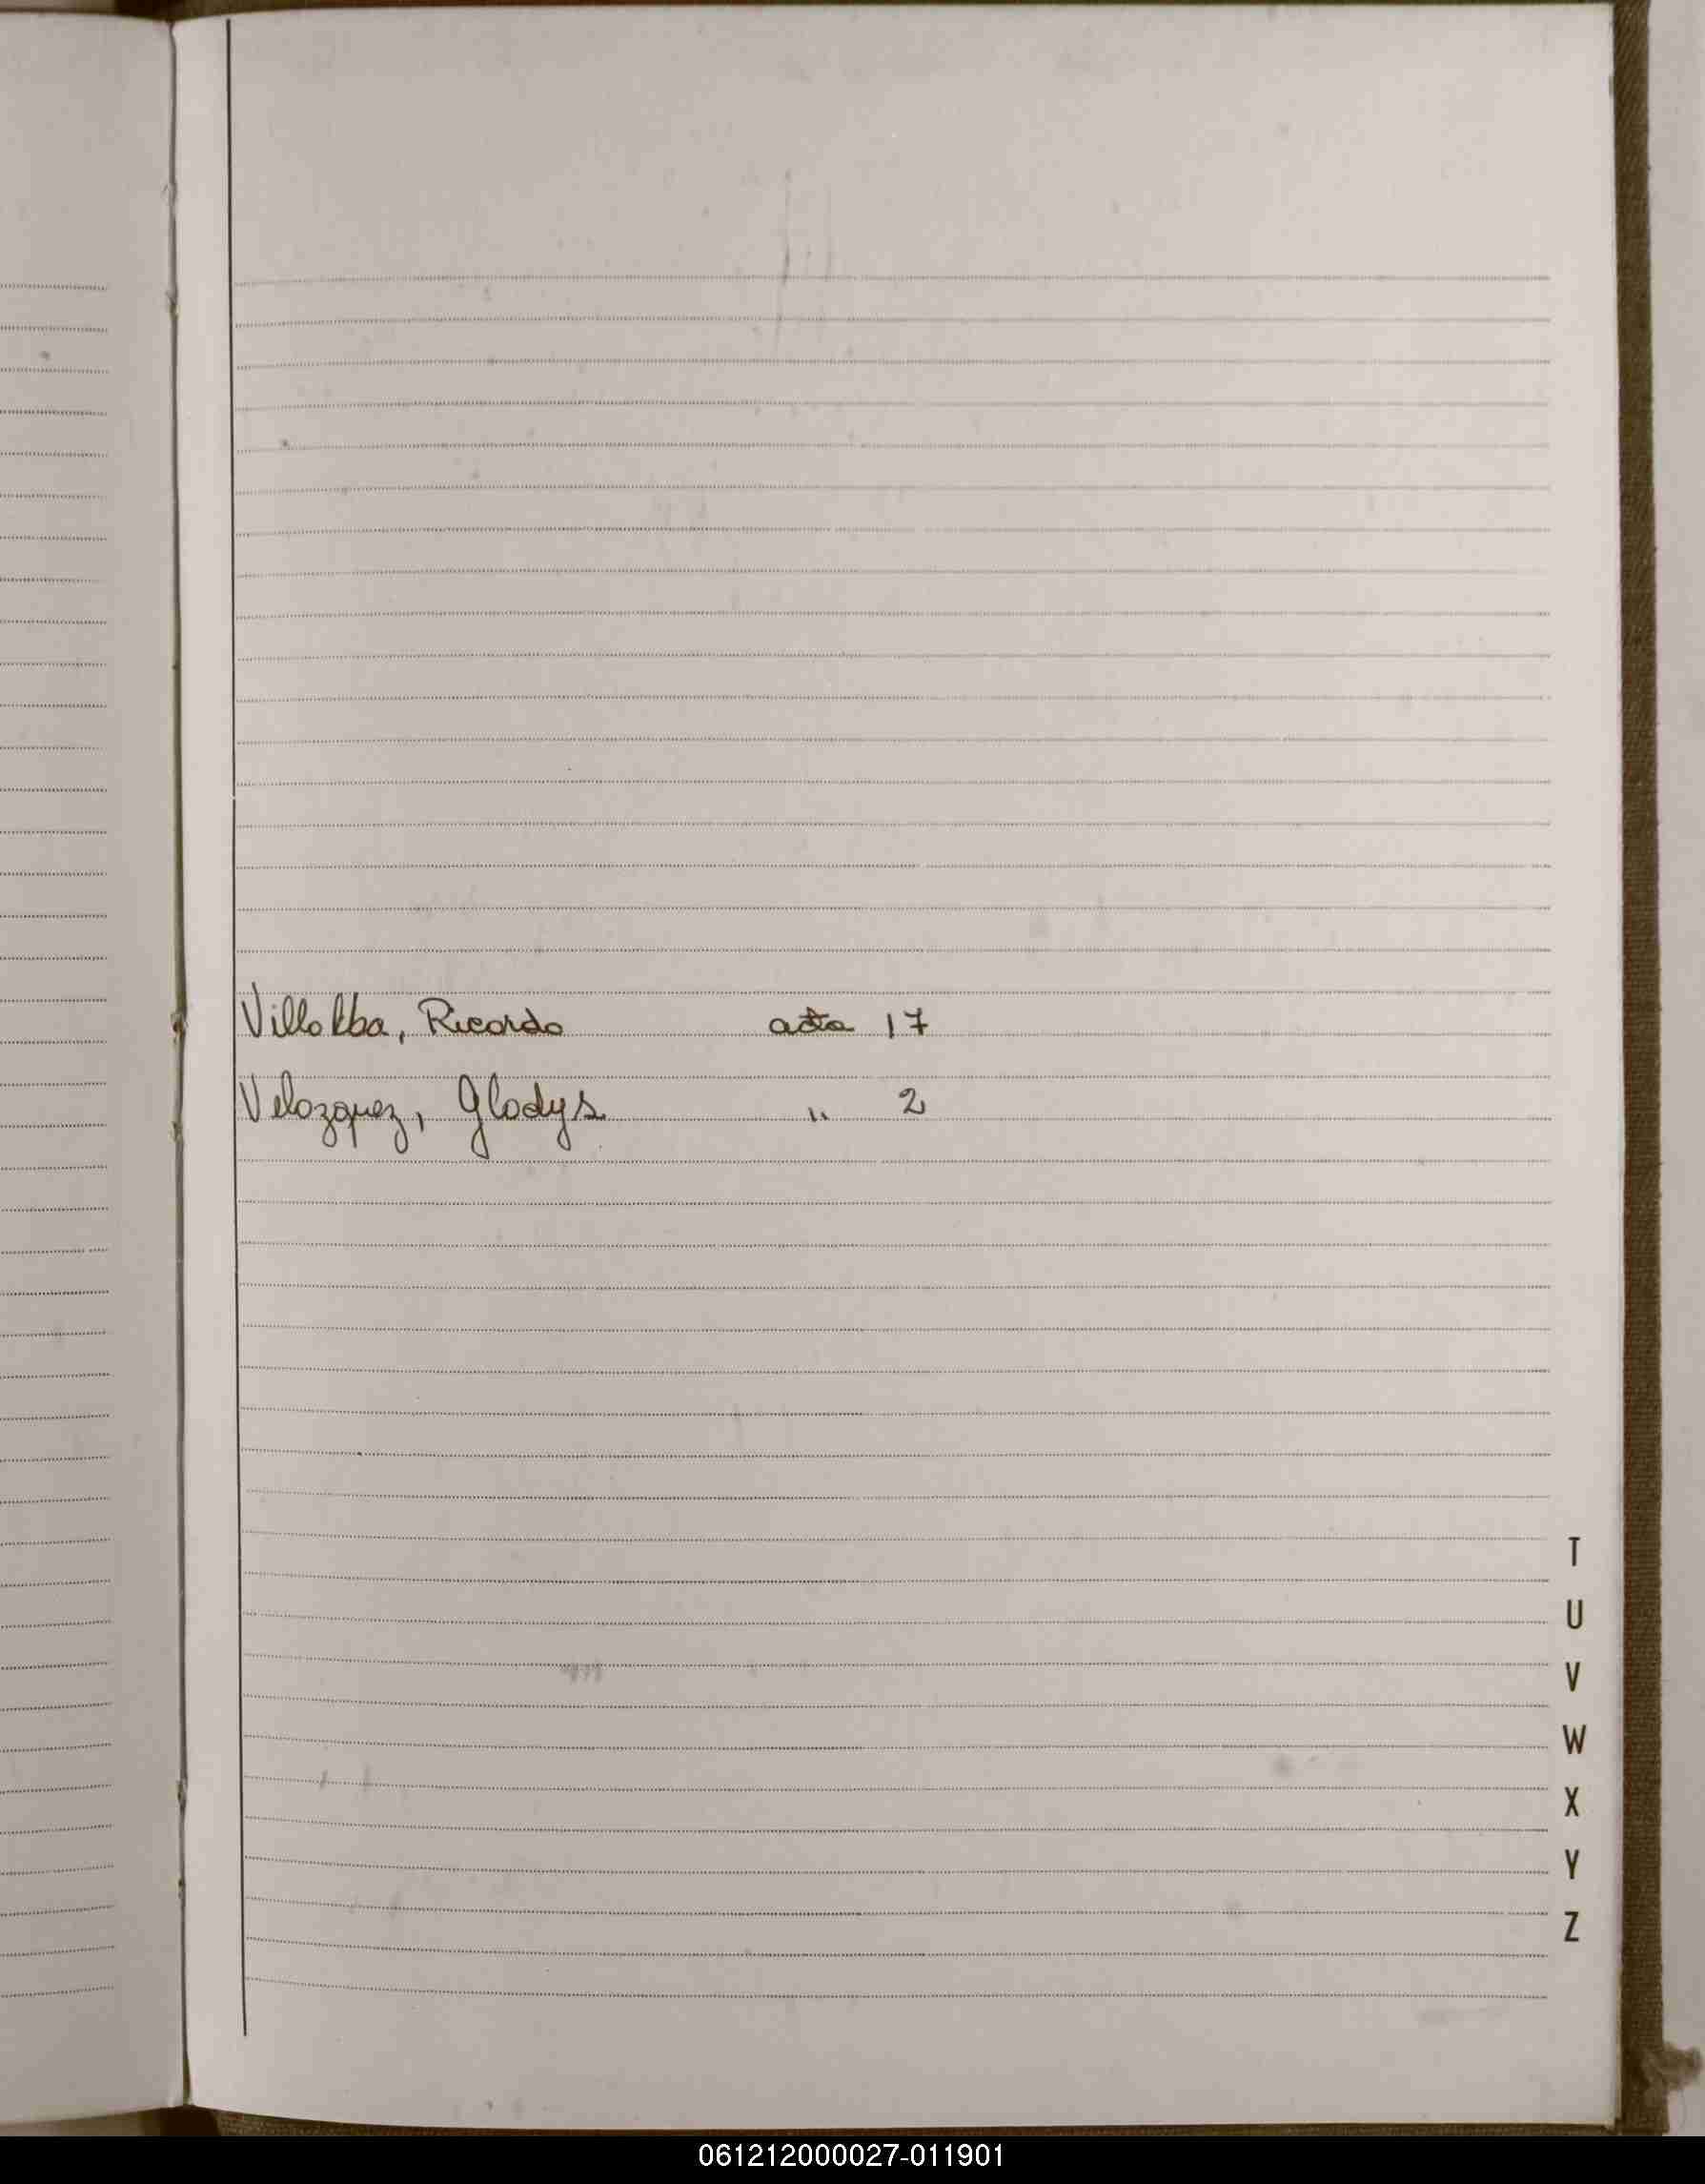 Villalba, Ricardo acta 17
Velazquez, Gladys " 2
T
U
V
W
X
Y
Z
061212000027-011901